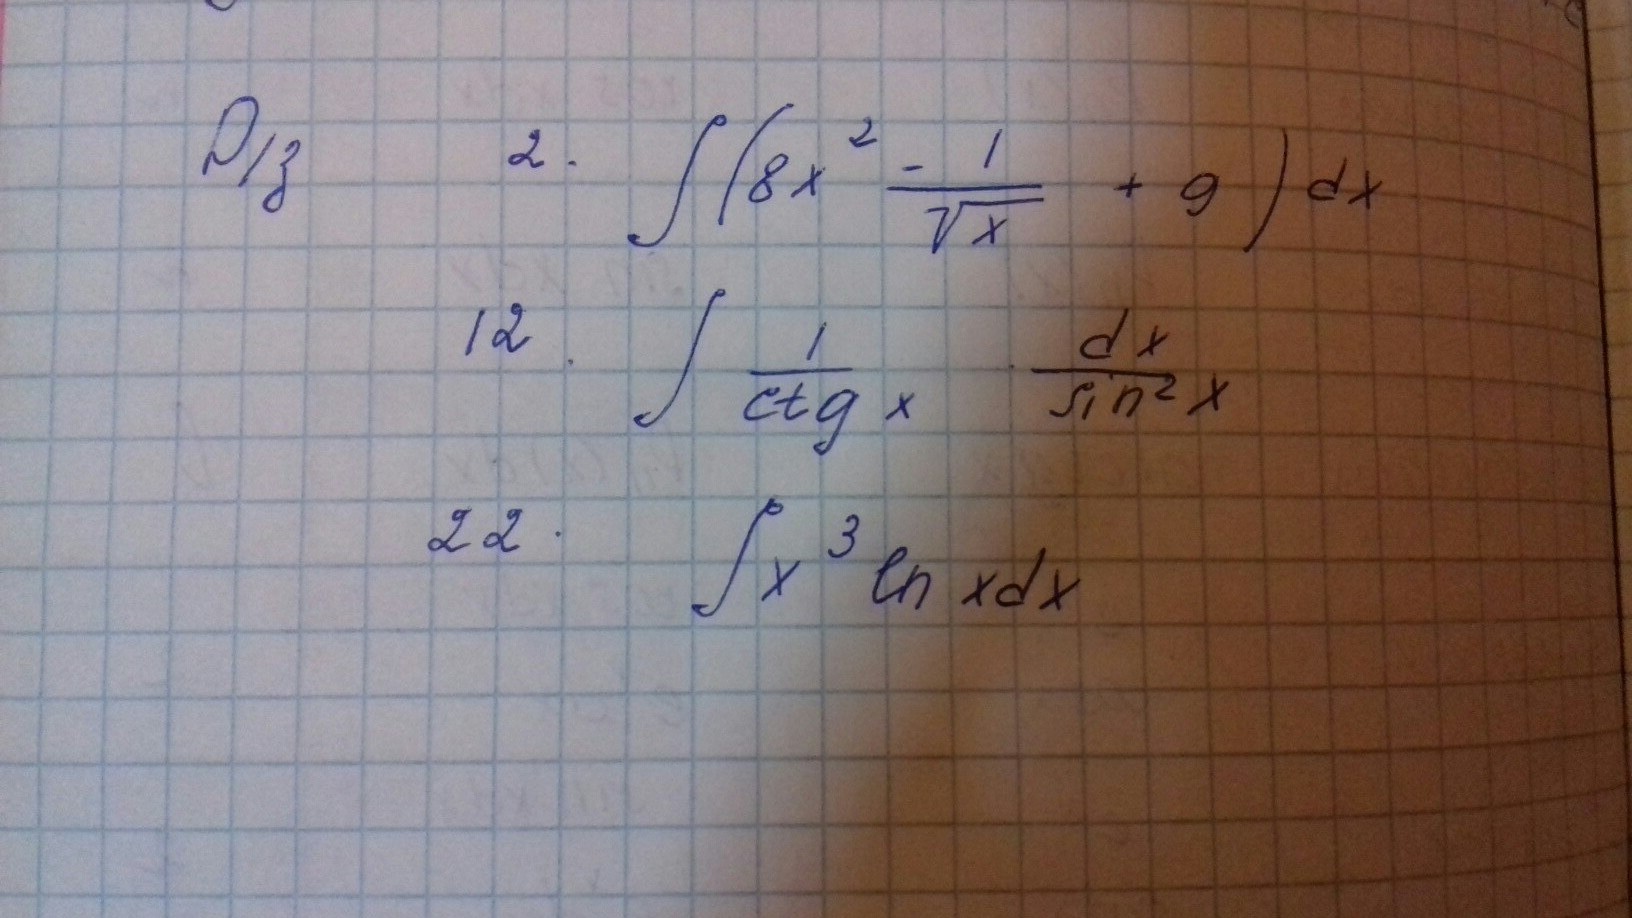 D/з 2. ∫(8x² - 1/√x + 9)dx
12. ∫ 1/ctg x · dx/sin² x
22. ∫x³ ln xdx